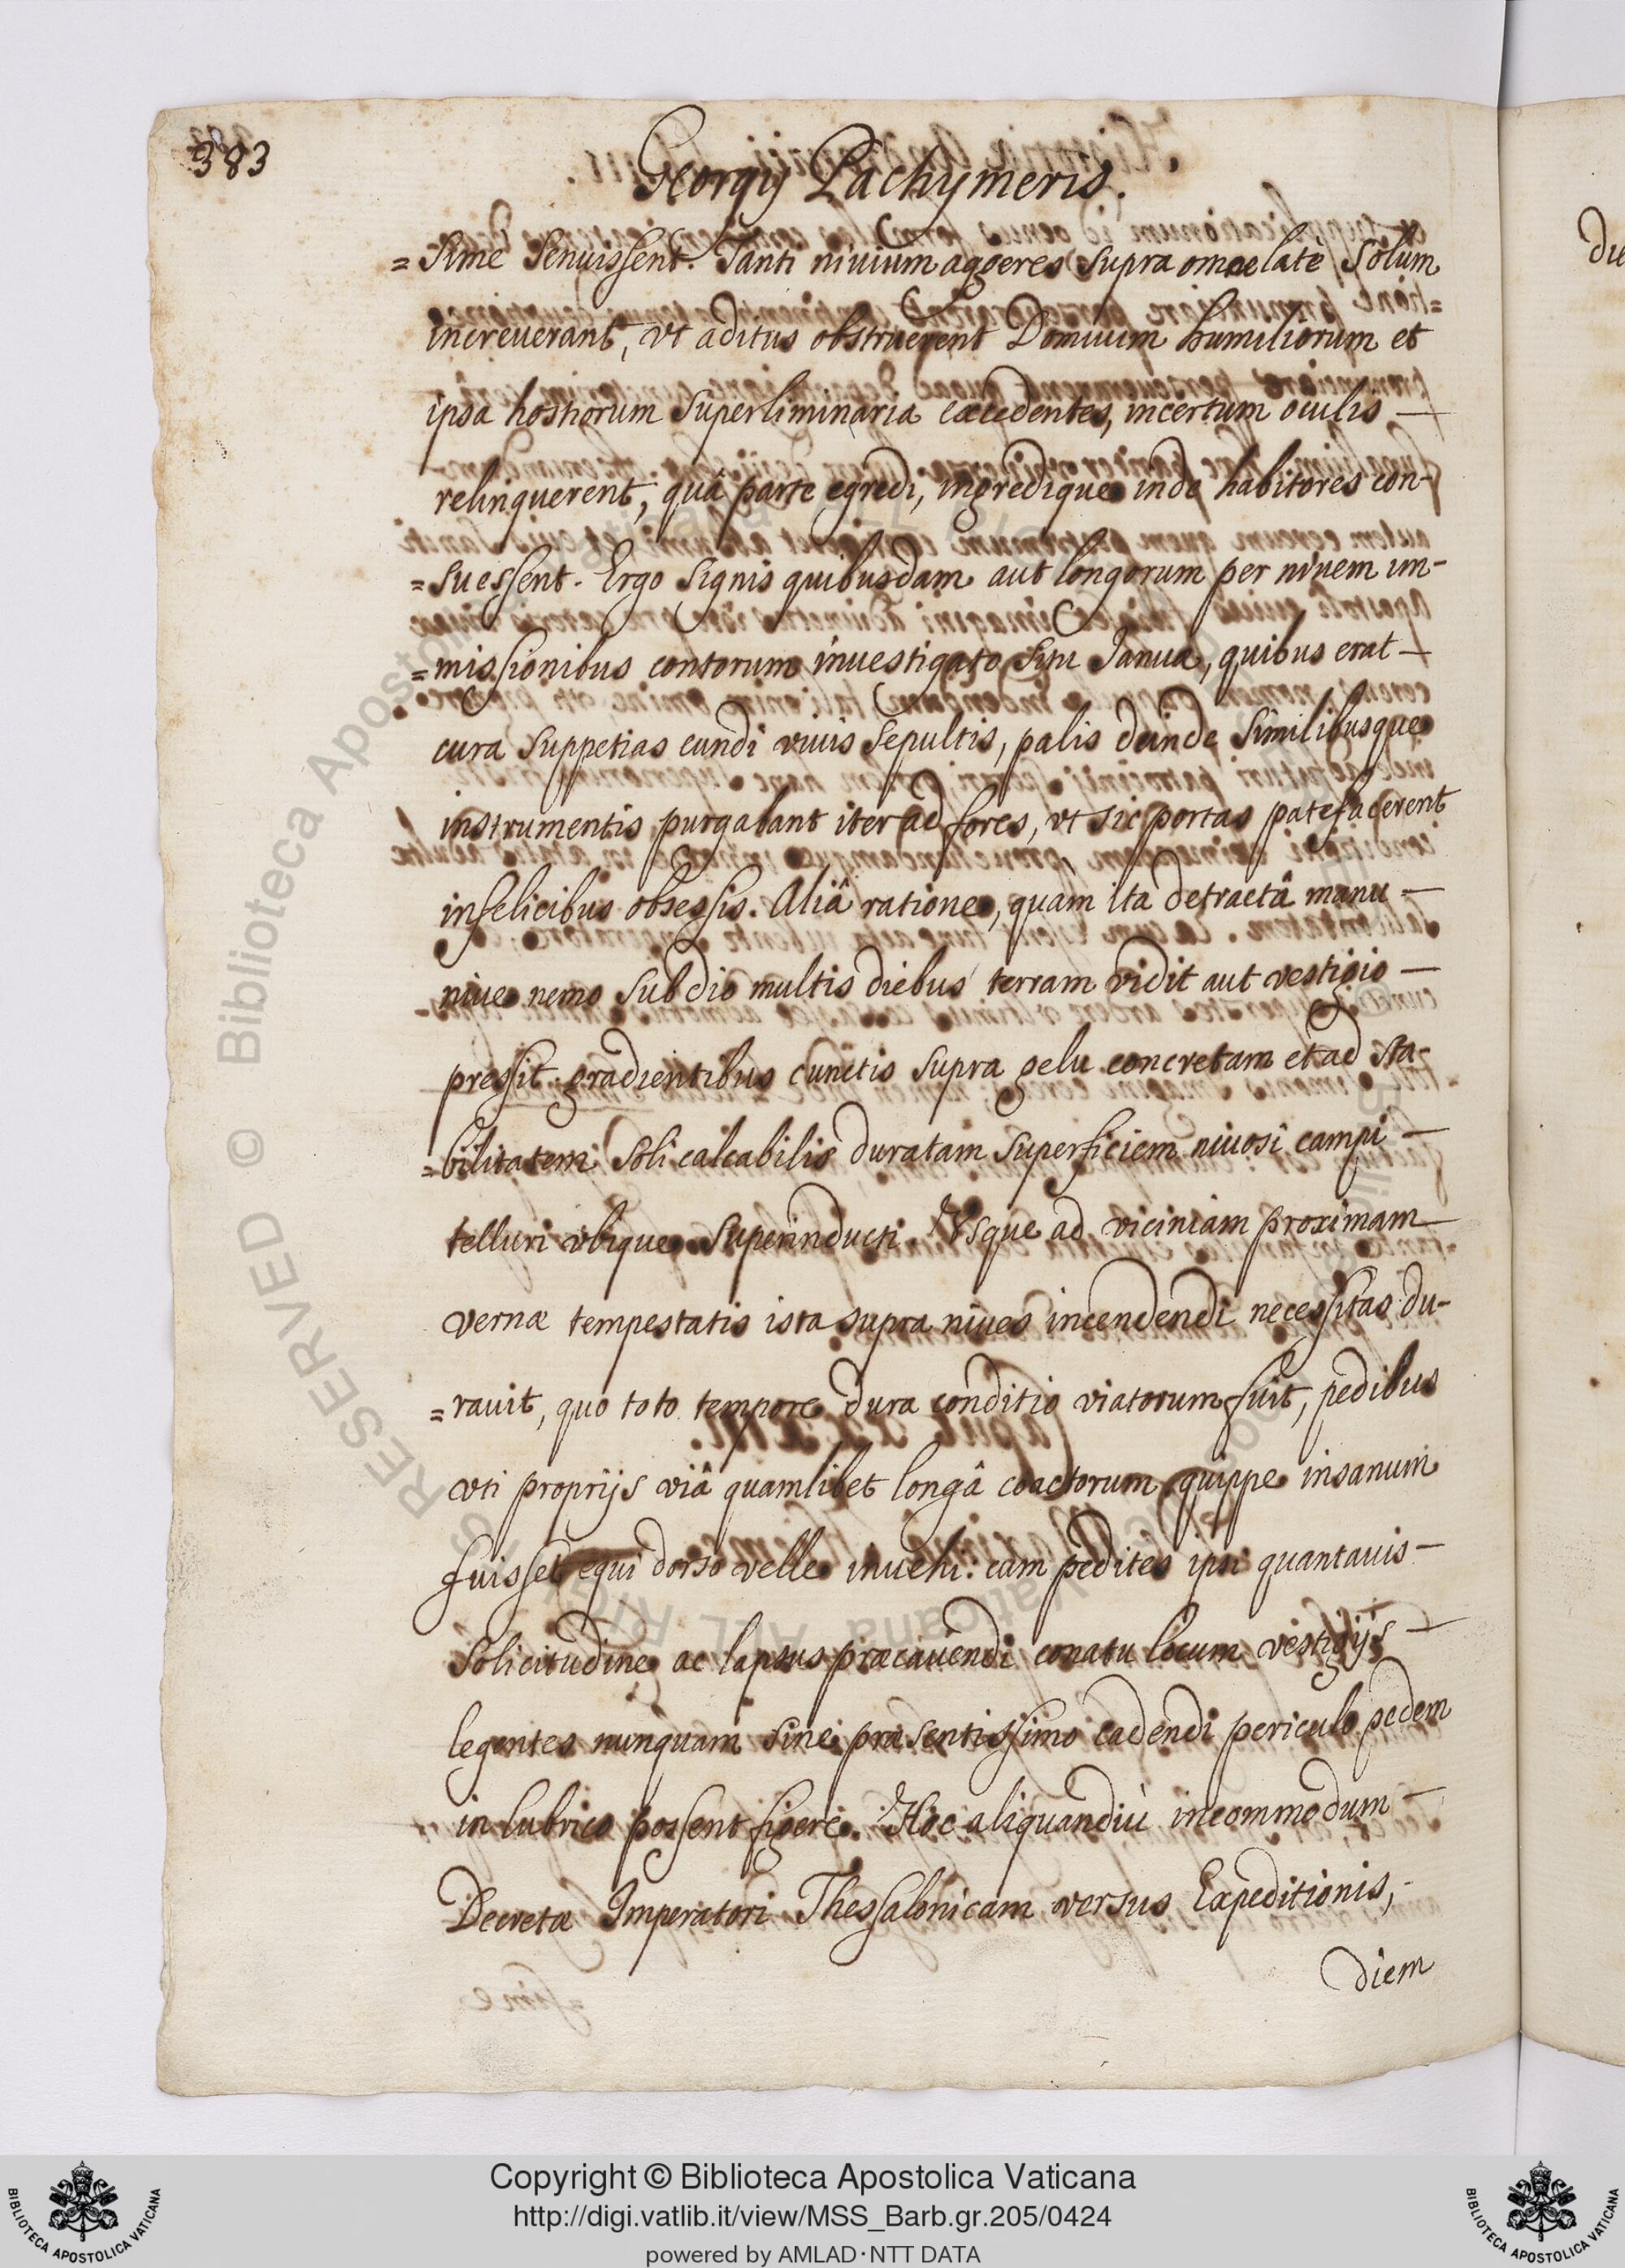 383
Georgij Pachymeris.
=sime senuissent. Tanti niuium aggeres supra omne late solum
increuerant, vt aditus obstruerent Domuum humiliorum et
ipsa hostiorum superliminaria excedentes, incertum oculis
relinquerent, quâ parte egredi, ingredique inde habitores con-
=suessent. Ergo signis quibusdam aut longorum per niuem im-
=missionibus contorum inuestigato situ Ianuæ, quibus erat
cura suppetias eundi viuis sepultis, palis deinde similibusque
instrumentis purgabant iter ad fores, vt sic portas patefacerent
infelicibus obsessis. Aliâ ratione, quam ita detractâ manu
niue nemo sub dio multis diebus terram vidit aut vestigio
pressit: gradientibus cunctis supra gelu concretam et ad sta-
=bilitatem soli calcabilis duratam superficiem niuosi campi
telluri vbique superinducti. Vsque ad viciniam proximam
vernæ tempestatis ista supra niues incendendi necessitas du-
=rauit, quo toto tempore dura conditio viatorum fuit, pedibus
vti proprijs viâ quamlibet longâ coactorum quippe insanum
fuisset equi dorso velle inuehi: cum pedites ipsi quantauis
solicitudine ac lapsus præcauendi conatu locum vestigijs
legentes nunquam sine præsentissimo cadendi periculo pedem
in lubrico possent figere. Hoc aliquandiu incommodum
Decretæ Imperatori Thessalonicam versus Expeditionis,
diem
Copyright © Biblioteca Apostolica Vaticana
http://digi.vatlib.it/view/MSS_Barb.gr.205/0424
powered by AMLAD·NTT DATA
BIBLIOTECA APOSTOLICA VATICANA
BIBLIOTECA APOSTOLICA VATICANA